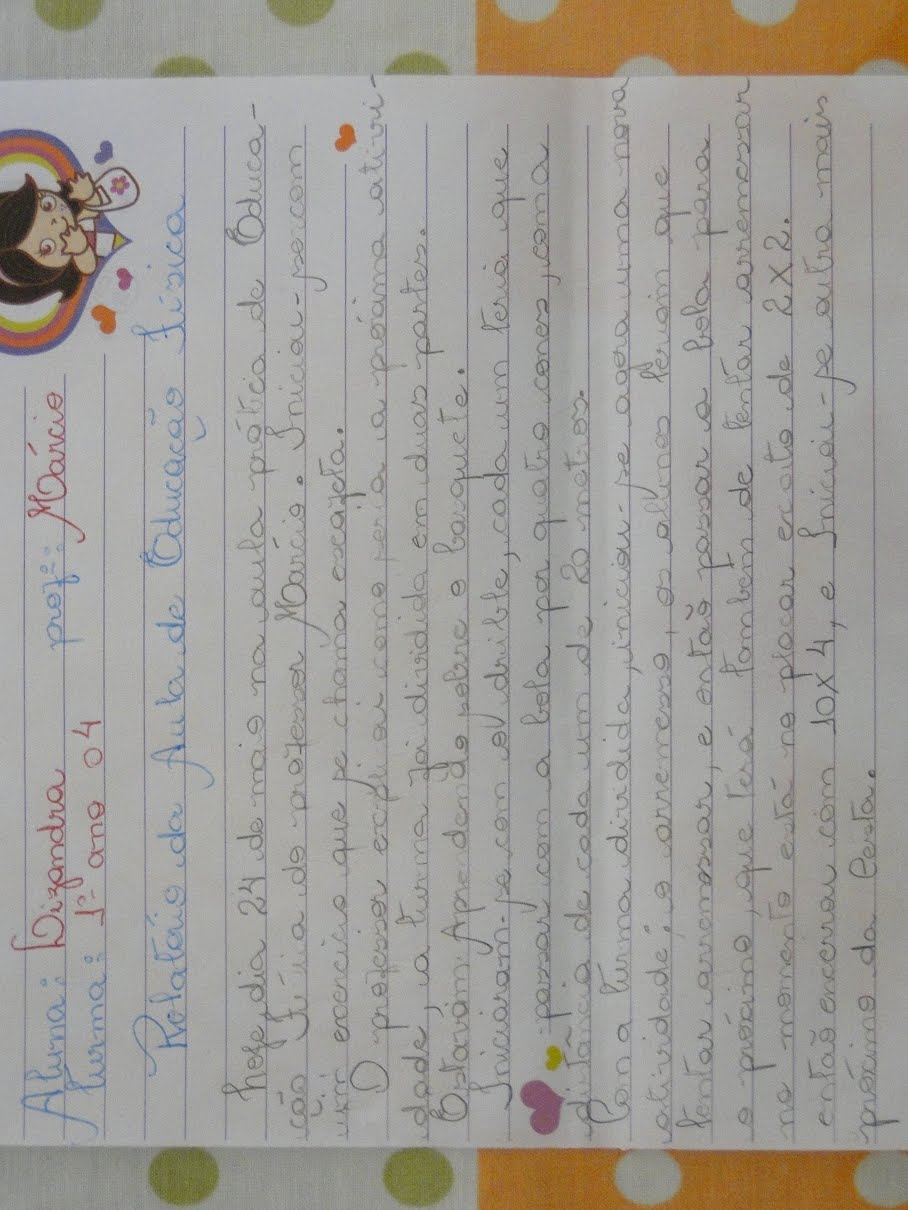 Aluna: Lizandra prof:: Márcio
Turma: 1º ano 04
Relatório da Aula de Educação Física
hoje, dia 24 de mais na aula prática de Educa-
cão Física do professor Márcio. Iniciou-se com
um exercício que se chama escafeta.
O professor explicou como seria a próxima ativi-
dade, a turma foi dividida em duas partes.
Estavam Aprendendo sobre o basquete.
Iniciaram-se com o drible, cada um teria que
passar com a bola por quatro cones, com a
distância de cada um de 20 metros.
Con a turma dividida, iniciou-se agora uma nova
atividade: o arremesso, os alunos teriam que
tentar arremossar, e então passar a bola para
o próximo, que terá tambem de tentar arremossar
no momento está no placar exato de 2x2.
então encerrar com 10x4, e Iniciou-se outra mais
próximo da Cesta.